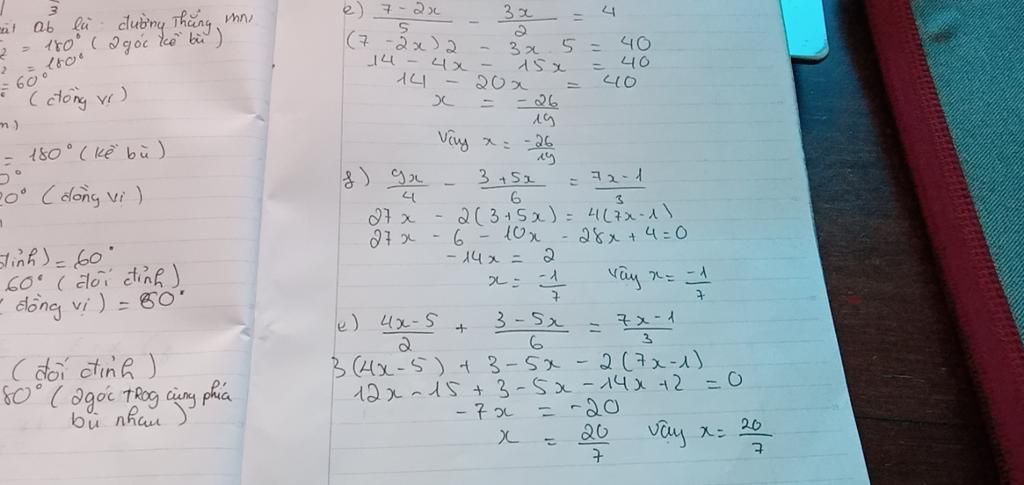 3
ab là : đường thẳng mn
= 180° (2góc kề bù)
= 180°
= 60°
(đồng vị)
= 180° (kề bù)
0°
0° (đồng vị)
đỉnh) = 60°
60° (đối đỉnh)
đồng vị) = 60°
(đối đỉnh)
80° (2góc Trog cùng phía
bù nhau)
e) \frac{7-2x}{5} - \frac{3x}{2} = 4
(7-2x)2 - 3x 5 = 40
14 - 4x - 15x = 40
14 - 20x = 40
x = \frac{-26}{19}
vậy x = \frac{-26}{19}
f) \frac{9x}{4} - \frac{3+5x}{6} = \frac{7x-1}{3}
27x - 2(3+5x) = 4(7x-1)
27x - 6 - 10x - 28x + 4 = 0
-14x = 2
x = \frac{-1}{7} vậy x = \frac{-1}{7}
e) \frac{4x-5}{2} + \frac{3-5x}{6} = \frac{7x-1}{3}
3(4x-5) + 3-5x - 2(7x-1)
12x - 15 + 3 - 5x - 14x + 2 = 0
-7x = -20
x = \frac{20}{7} vậy x = \frac{20}{7}